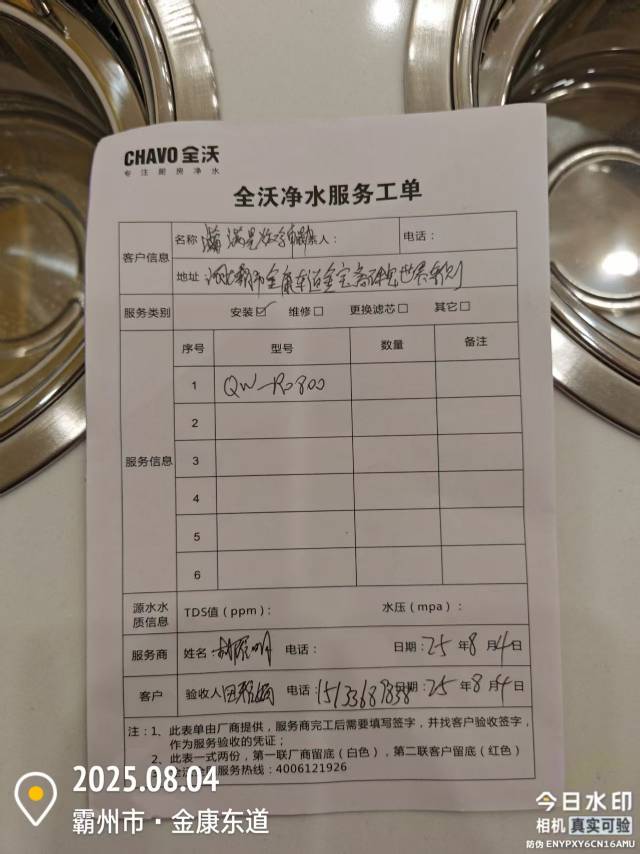 CHAVO 全沃
专注厨房净水
全沃净水服务工单
客户信息
名称 联系人： 电话：
地址
服务类别 安装☑ 维修□ 更换滤芯□ 其它□
服务信息
序号 型号 数量 备注
1 QW-RO800
2
3
4
5
6
源水水质信息 TDS值（ppm）： 水压（mpa）：
服务商 姓名 电话： 日期：25 年 8 月 4 日
客户 验收人 电话：15133689838 日期：25 年 8 月 4 日
注：1、此表单由厂商提供，服务商完工后需要填写签字，并找客户验收签字，
作为服务验收的凭证；
2、此表一式两份，第一联厂商留底（白色），第二联客户留底（红色）
服务热线：4006121926
2025.08.04
霸州市·金康东道
今日水印
相机 真实可验
防伪 ENYPXY6CN16AMU